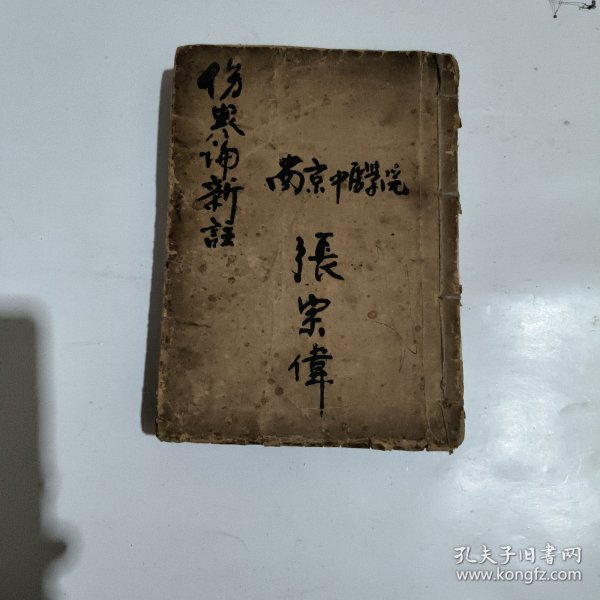 伤寒论新註
南京中醫學院
張宗偉
孔夫子旧书网
www.kongfz.com